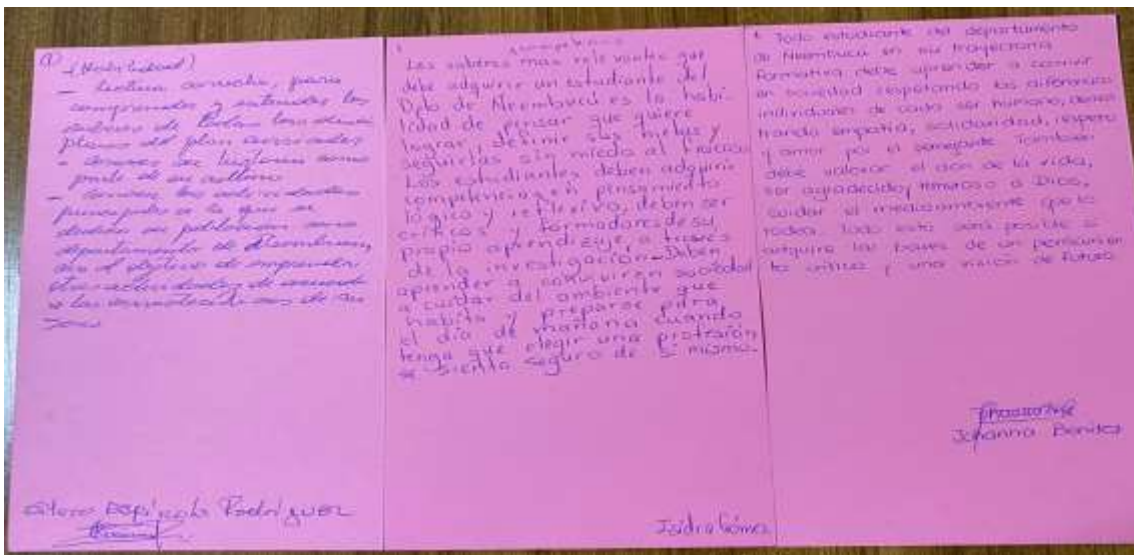 (Habilidad)
- Lectura, para
comprender y entender los
saberes de
planes del plan
- Conocer su historia como
parte de su cultura
- Conocer las actividades
principales a la que se
dedica su población
departamento de Ñeembucú,
con el objetivo de emprender
otras actividades de acuerdo
a las de su
zona
Rodríguez
competencia
Los saberes más relevantes que
debe adquirir un estudiante del
Dpto de Ñeembucú es la habi-
lidad de pensar que quiere
lograr, definir sus metas y
seguirlas sin miedo al fracaso
Los estudiantes deben adquirir
competencias en pensamiento
lógico y reflexivo, deben ser
críticos y formadores de su
propio aprendizaje, a través
de la investigación. Deben
aprender a convivir en sociedad
a cuidar del ambiente que
habita y prepararse para
el día de mañana cuando
tenga que elegir una profesión
se sienta seguro de sí mismo.
Isidra Gómez
Todo estudiante del departamento
de Ñeembucú en su trayectoria
formativa debe aprender a convivir
en sociedad respetando las diferencias
individuales de cada ser humano, demos
trando empatía, solidaridad, respeto
y amor por el semejante. También
debe valorar el don de la vida,
ser agradecido, temeroso a Dios,
cuidar el medio ambiente que lo
rodea. Todo esto será posible si
adquiere las bases de un pensamien
to crítico y una visión de futuro
Johanna Benítez